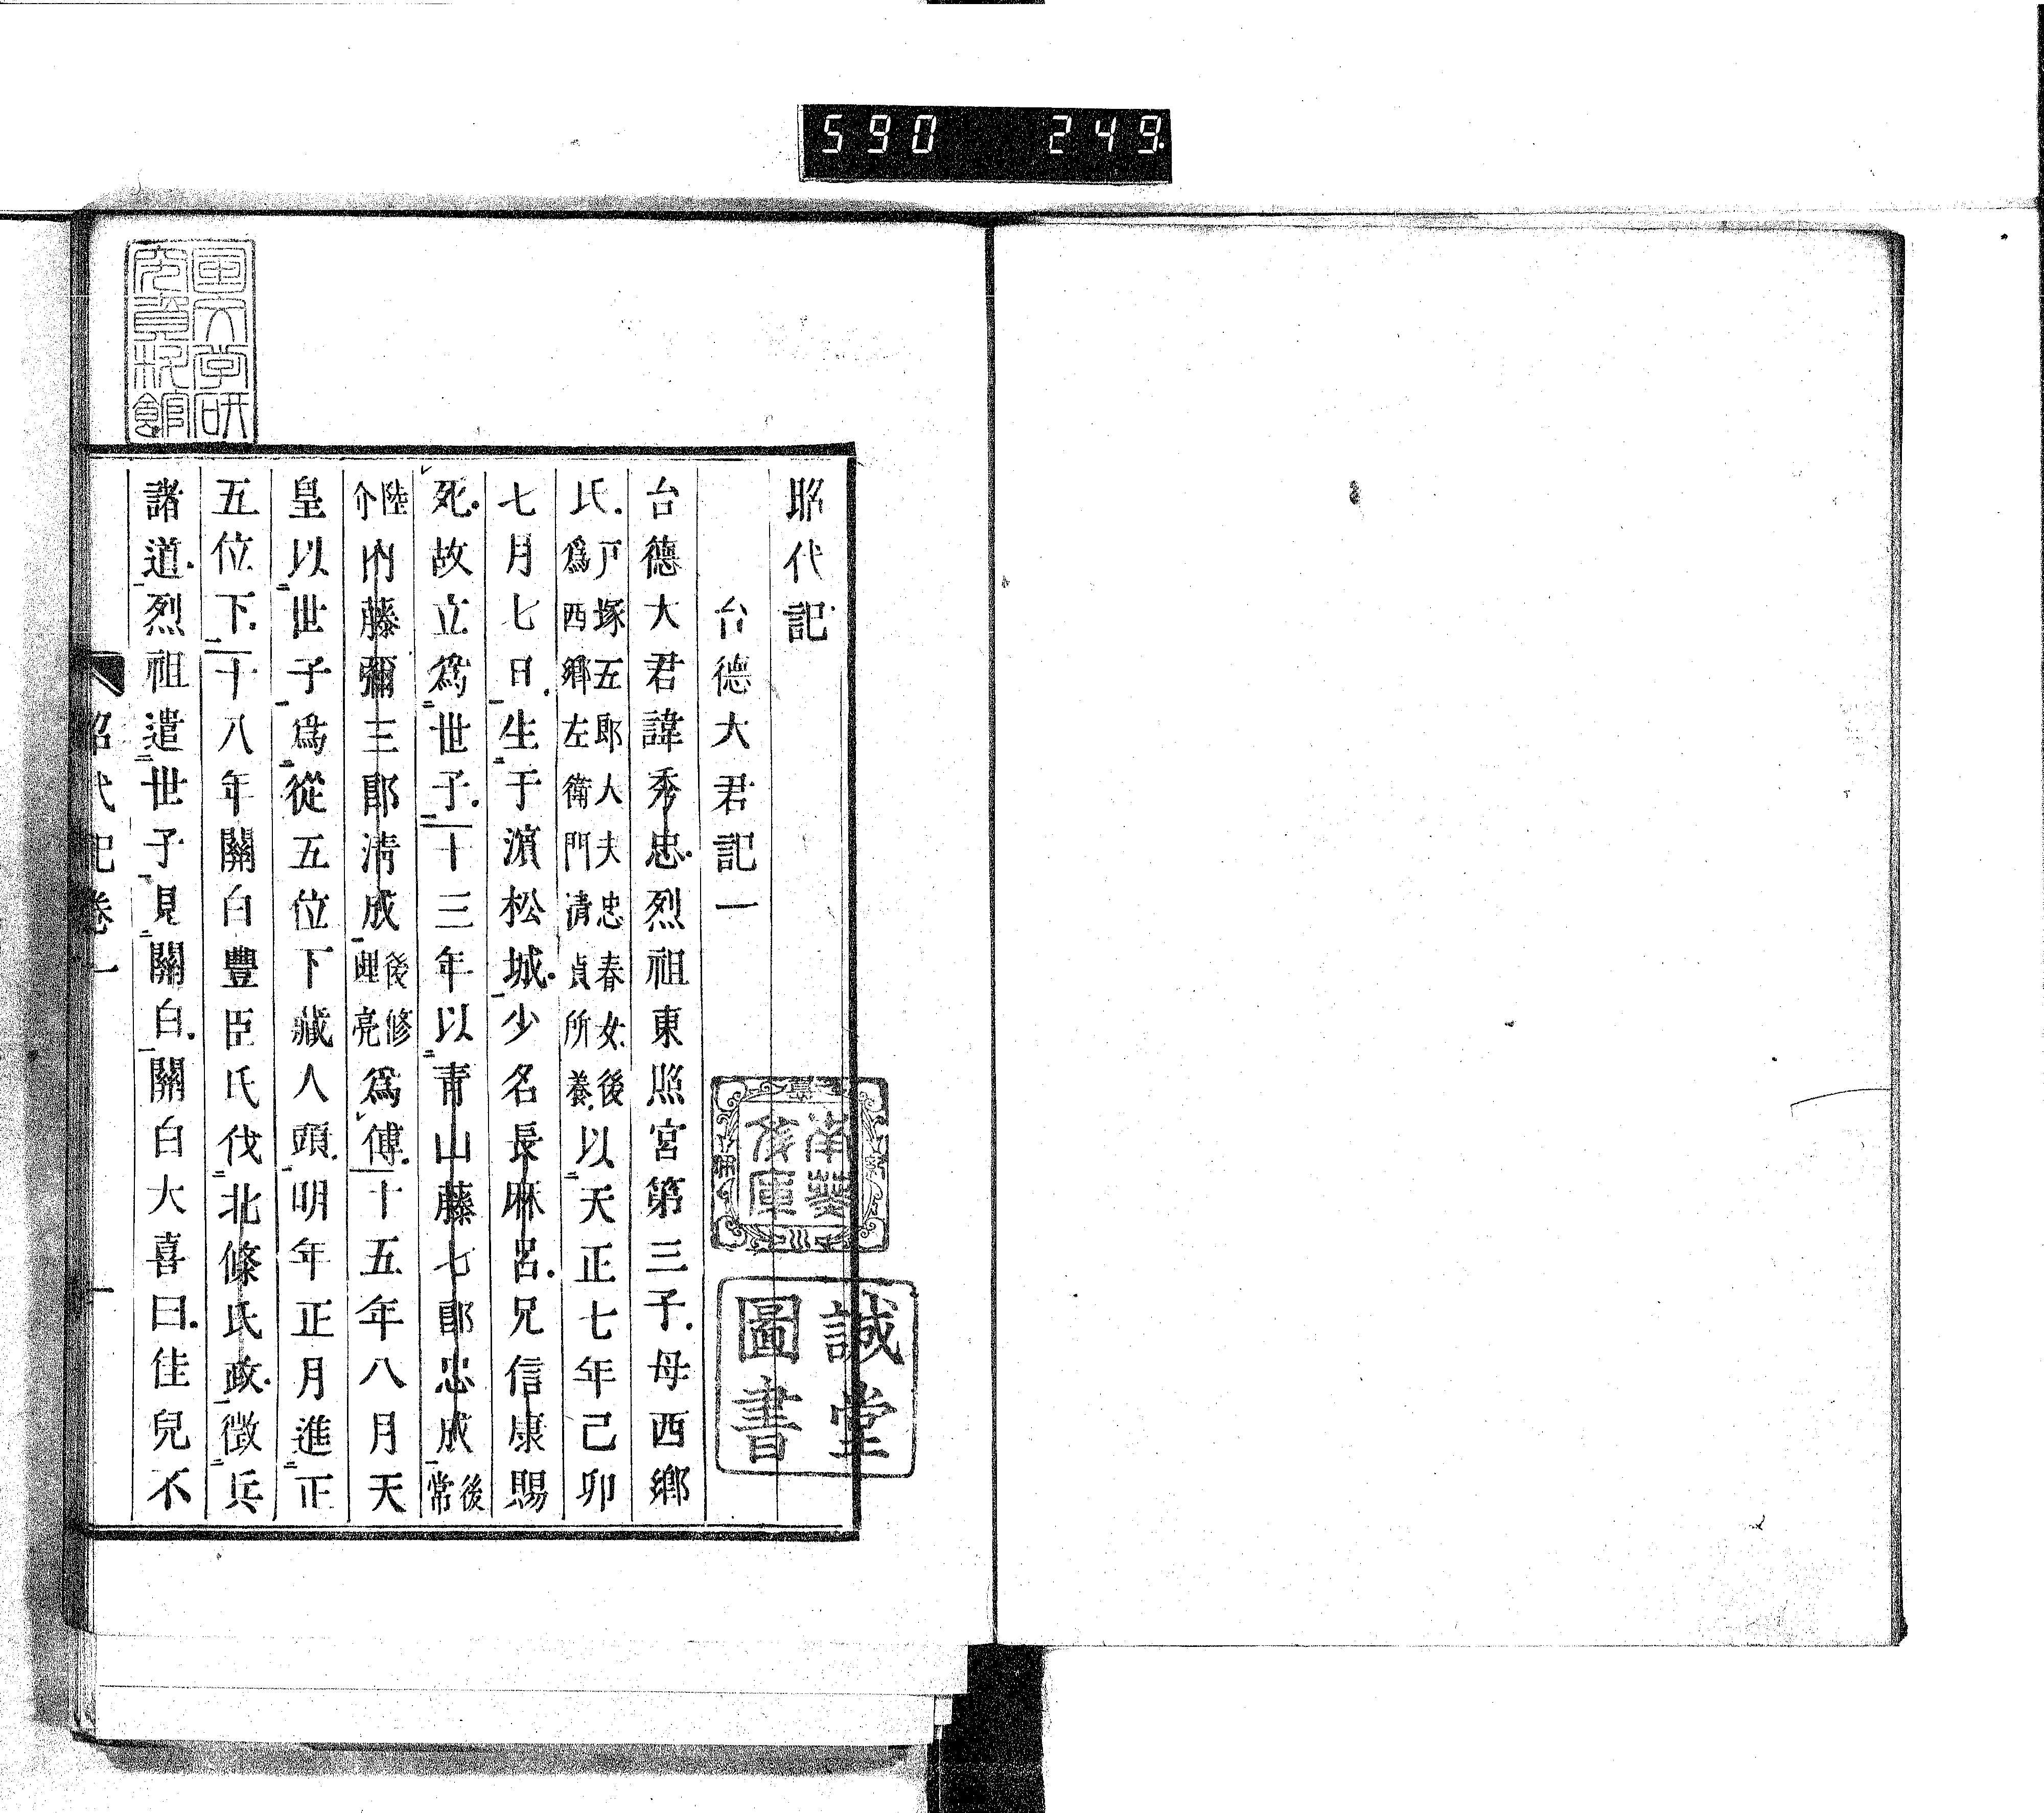 590 249
昭代記
台德大君記一
台德大君諱秀忠烈祖東照宮第三子母西鄕
氏戸塚五郎人夫忠春女後爲西鄕左衛門淸貞所養以天正七年己卯
七月七日生于濵松城少名長麻呂兄信康賜
死故立爲世子十三年以靑山藤七郎忠成後常
陸介內藤彌三郎淸成後修理亮爲傅十五年八月天
皇以世子爲從五位下藏人頭明年正月進正
五位下十八年關白豐臣氏伐北條氏政徵兵
諸道烈祖遣世子見關白關白大喜曰佳兒不
昭代記卷一 一
國文学研究資料館
南葵文庫
誠堂圖書